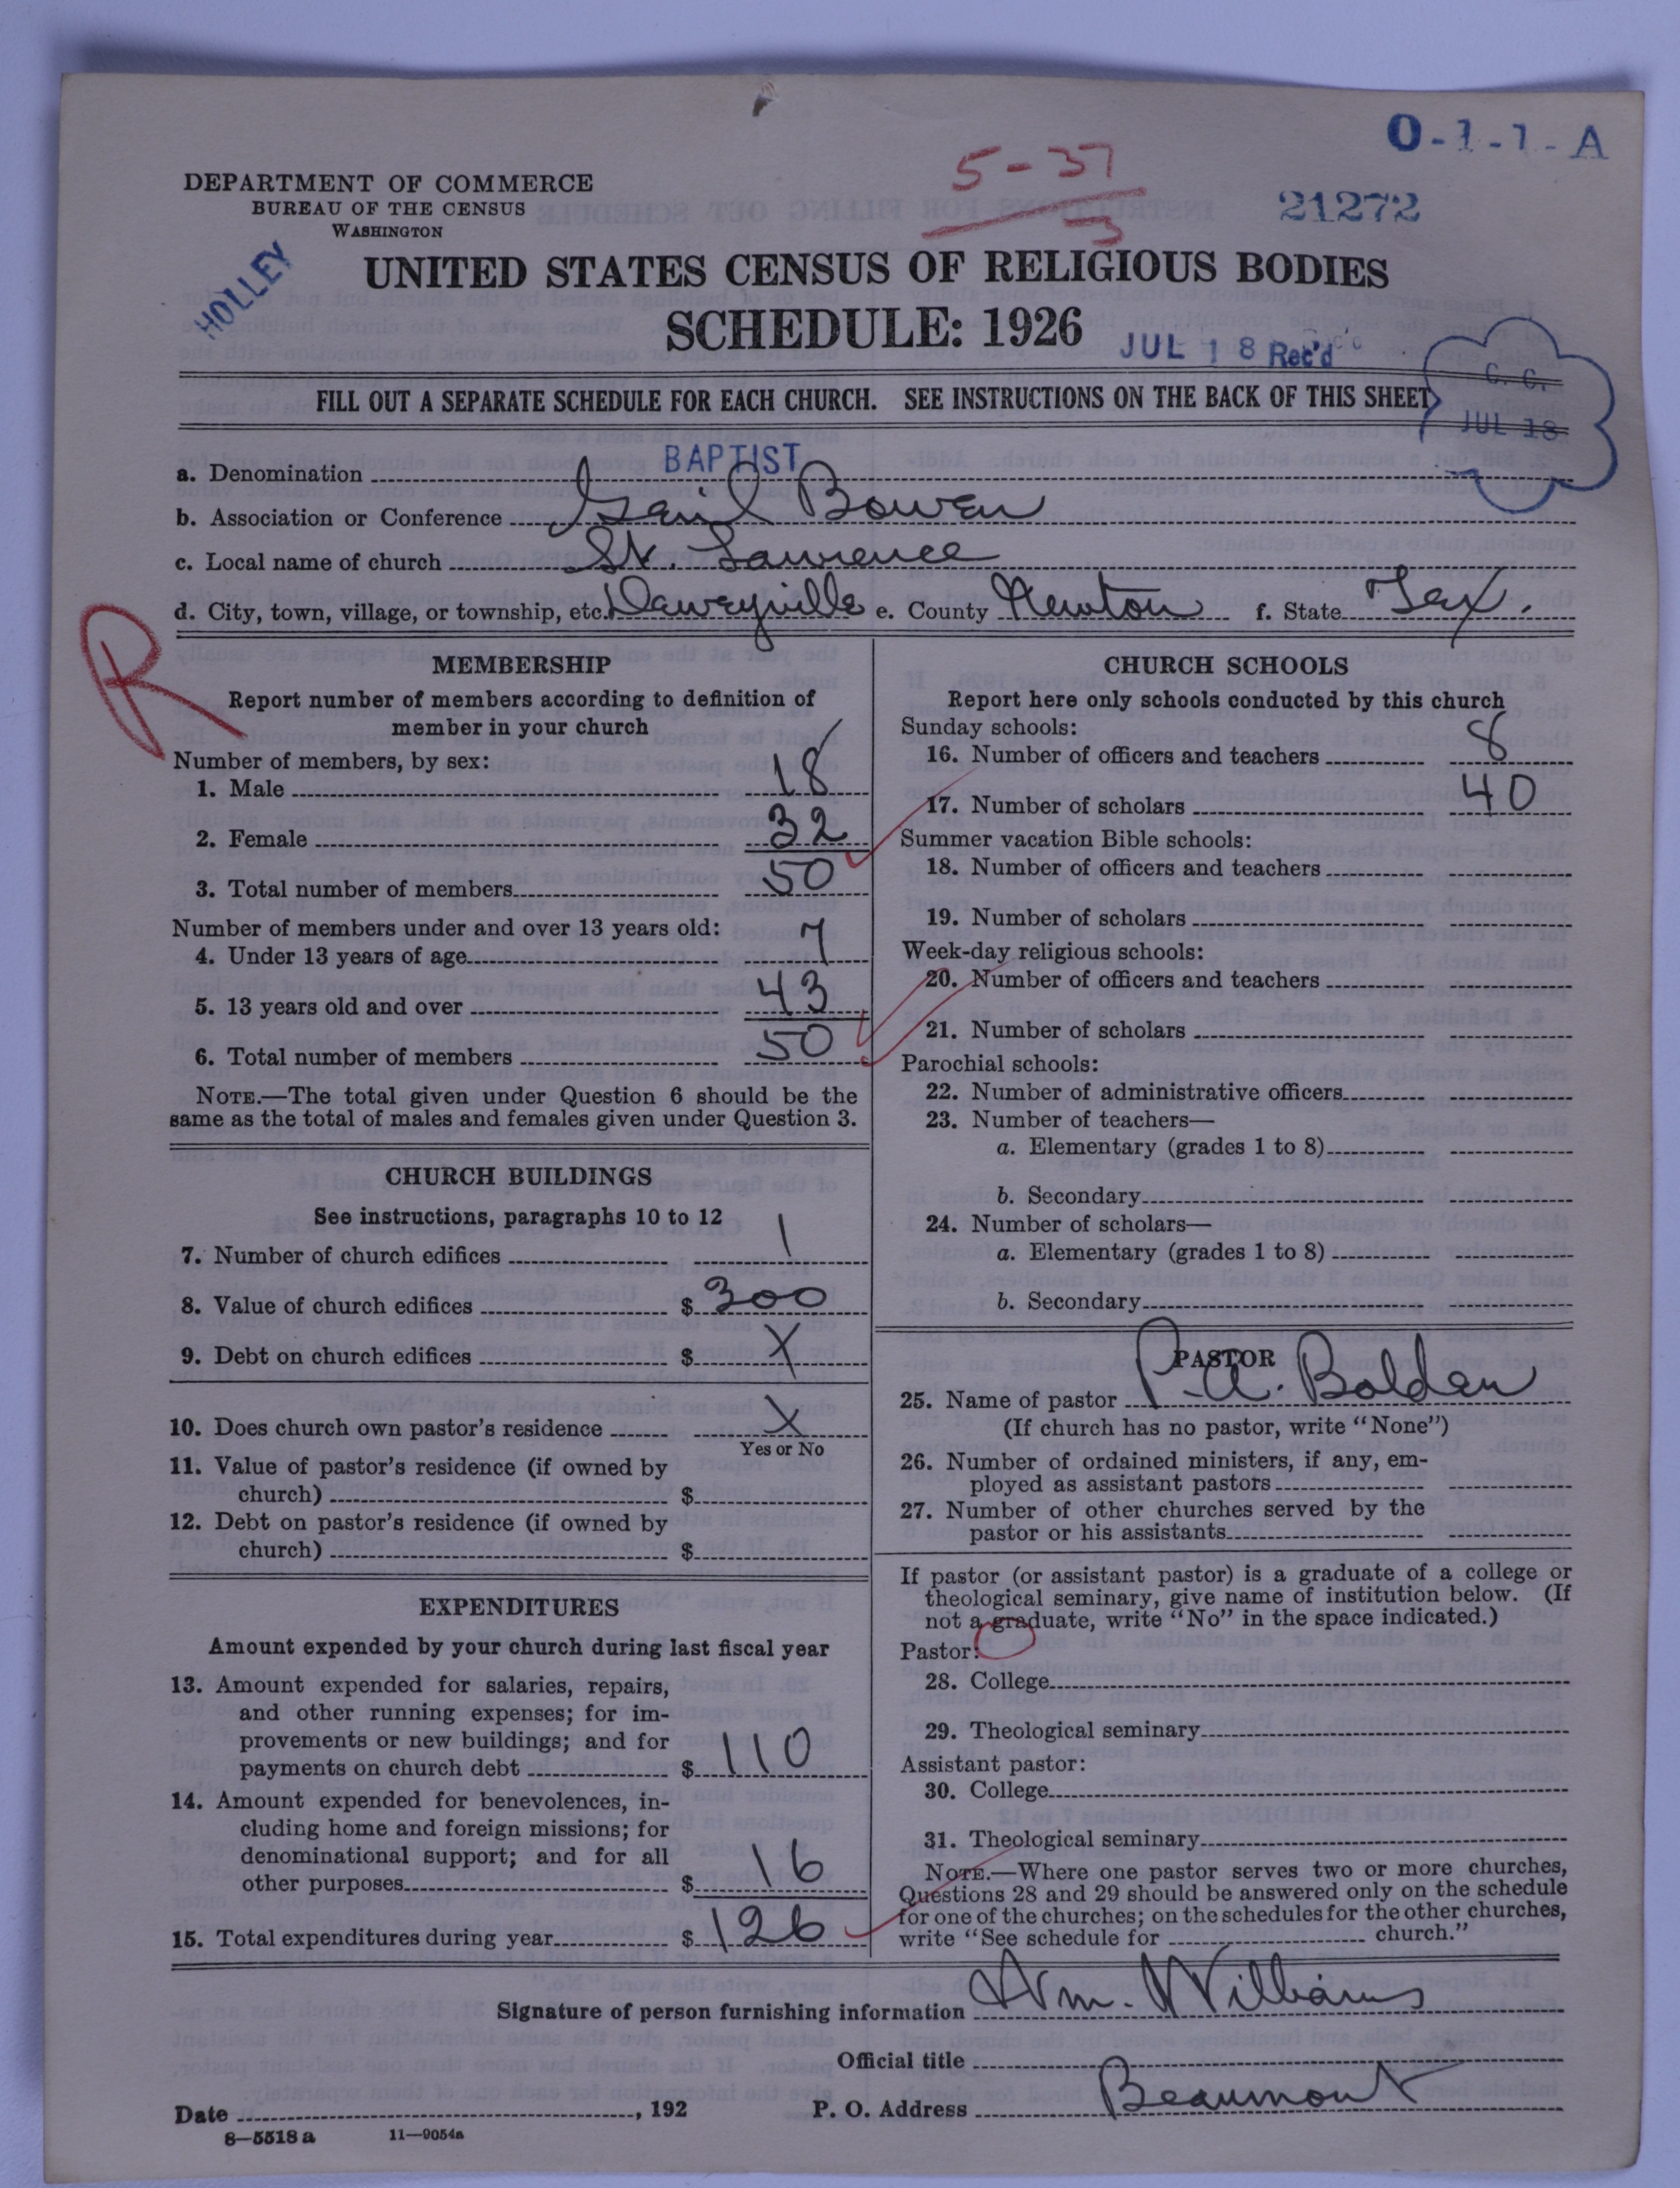 O-1-1-A
5-37
3
21272
DEPARTMENT OF COMMERCE
BUREAU OF THE CENSUS
WASHINGTON
HOLLEY
UNITED STATES CENSUS OF RELIGIOUS BODIES
SCHEDULE: 1926
JUL 18 Rec'd
C. C.
JUL 18
FILL OUT A SEPARATE SCHEDULE FOR EACH CHURCH. SEE INSTRUCTIONS ON THE BACK OF THIS SHEET
a. Denomination BAPTIST
b. Association or Conference Bowen
c. Local name of church St. Lawrence
d. City, town, village, or township, etc. Daweyville e. County Newton f. State Tex.
R
MEMBERSHIP
Report number of members according to definition of
member in your church
Number of members, by sex:
1. Male 18
2. Female 32
3. Total number of members 50
Number of members under and over 13 years old:
4. Under 13 years of age 7
5. 13 years old and over 43
6. Total number of members 50
NOTE.—The total given under Question 6 should be the
same as the total of males and females given under Question 3.
CHURCH BUILDINGS
See instructions, paragraphs 10 to 12
7. Number of church edifices 1
8. Value of church edifices $ 300
9. Debt on church edifices $ X
10. Does church own pastor's residence X
Yes or No
11. Value of pastor's residence (if owned by
church) $
12. Debt on pastor's residence (if owned by
church) $
EXPENDITURES
Amount expended by your church during last fiscal year
13. Amount expended for salaries, repairs,
and other running expenses; for im-
provements or new buildings; and for
payments on church debt $ 110
14. Amount expended for benevolences, in-
cluding home and foreign missions; for
denominational support; and for all
other purposes $ 16
15. Total expenditures during year $ 126
CHURCH SCHOOLS
Report here only schools conducted by this church
Sunday schools:
16. Number of officers and teachers 8
17. Number of scholars 40
Summer vacation Bible schools:
18. Number of officers and teachers
19. Number of scholars
Week-day religious schools:
20. Number of officers and teachers
21. Number of scholars
Parochial schools:
22. Number of administrative officers
23. Number of teachers—
a. Elementary (grades 1 to 8)
b. Secondary
24. Number of scholars—
a. Elementary (grades 1 to 8)
b. Secondary
PASTOR
25. Name of pastor P.A. Bolden
(If church has no pastor, write "None")
26. Number of ordained ministers, if any, em-
ployed as assistant pastors
27. Number of other churches served by the
pastor or his assistants
If pastor (or assistant pastor) is a graduate of a college or
theological seminary, give name of institution below. (If
not a graduate, write "No" in the space indicated.)
Pastor:
28. College
29. Theological seminary
Assistant pastor:
30. College
31. Theological seminary
NOTE.—Where one pastor serves two or more churches,
Questions 28 and 29 should be answered only on the schedule
for one of the churches; on the schedules for the other churches,
write "See schedule for church."
Signature of person furnishing information Wm. Williams
Official title
Date , 192 P. O. Address Beaumont
8—5518 a 11—9054a